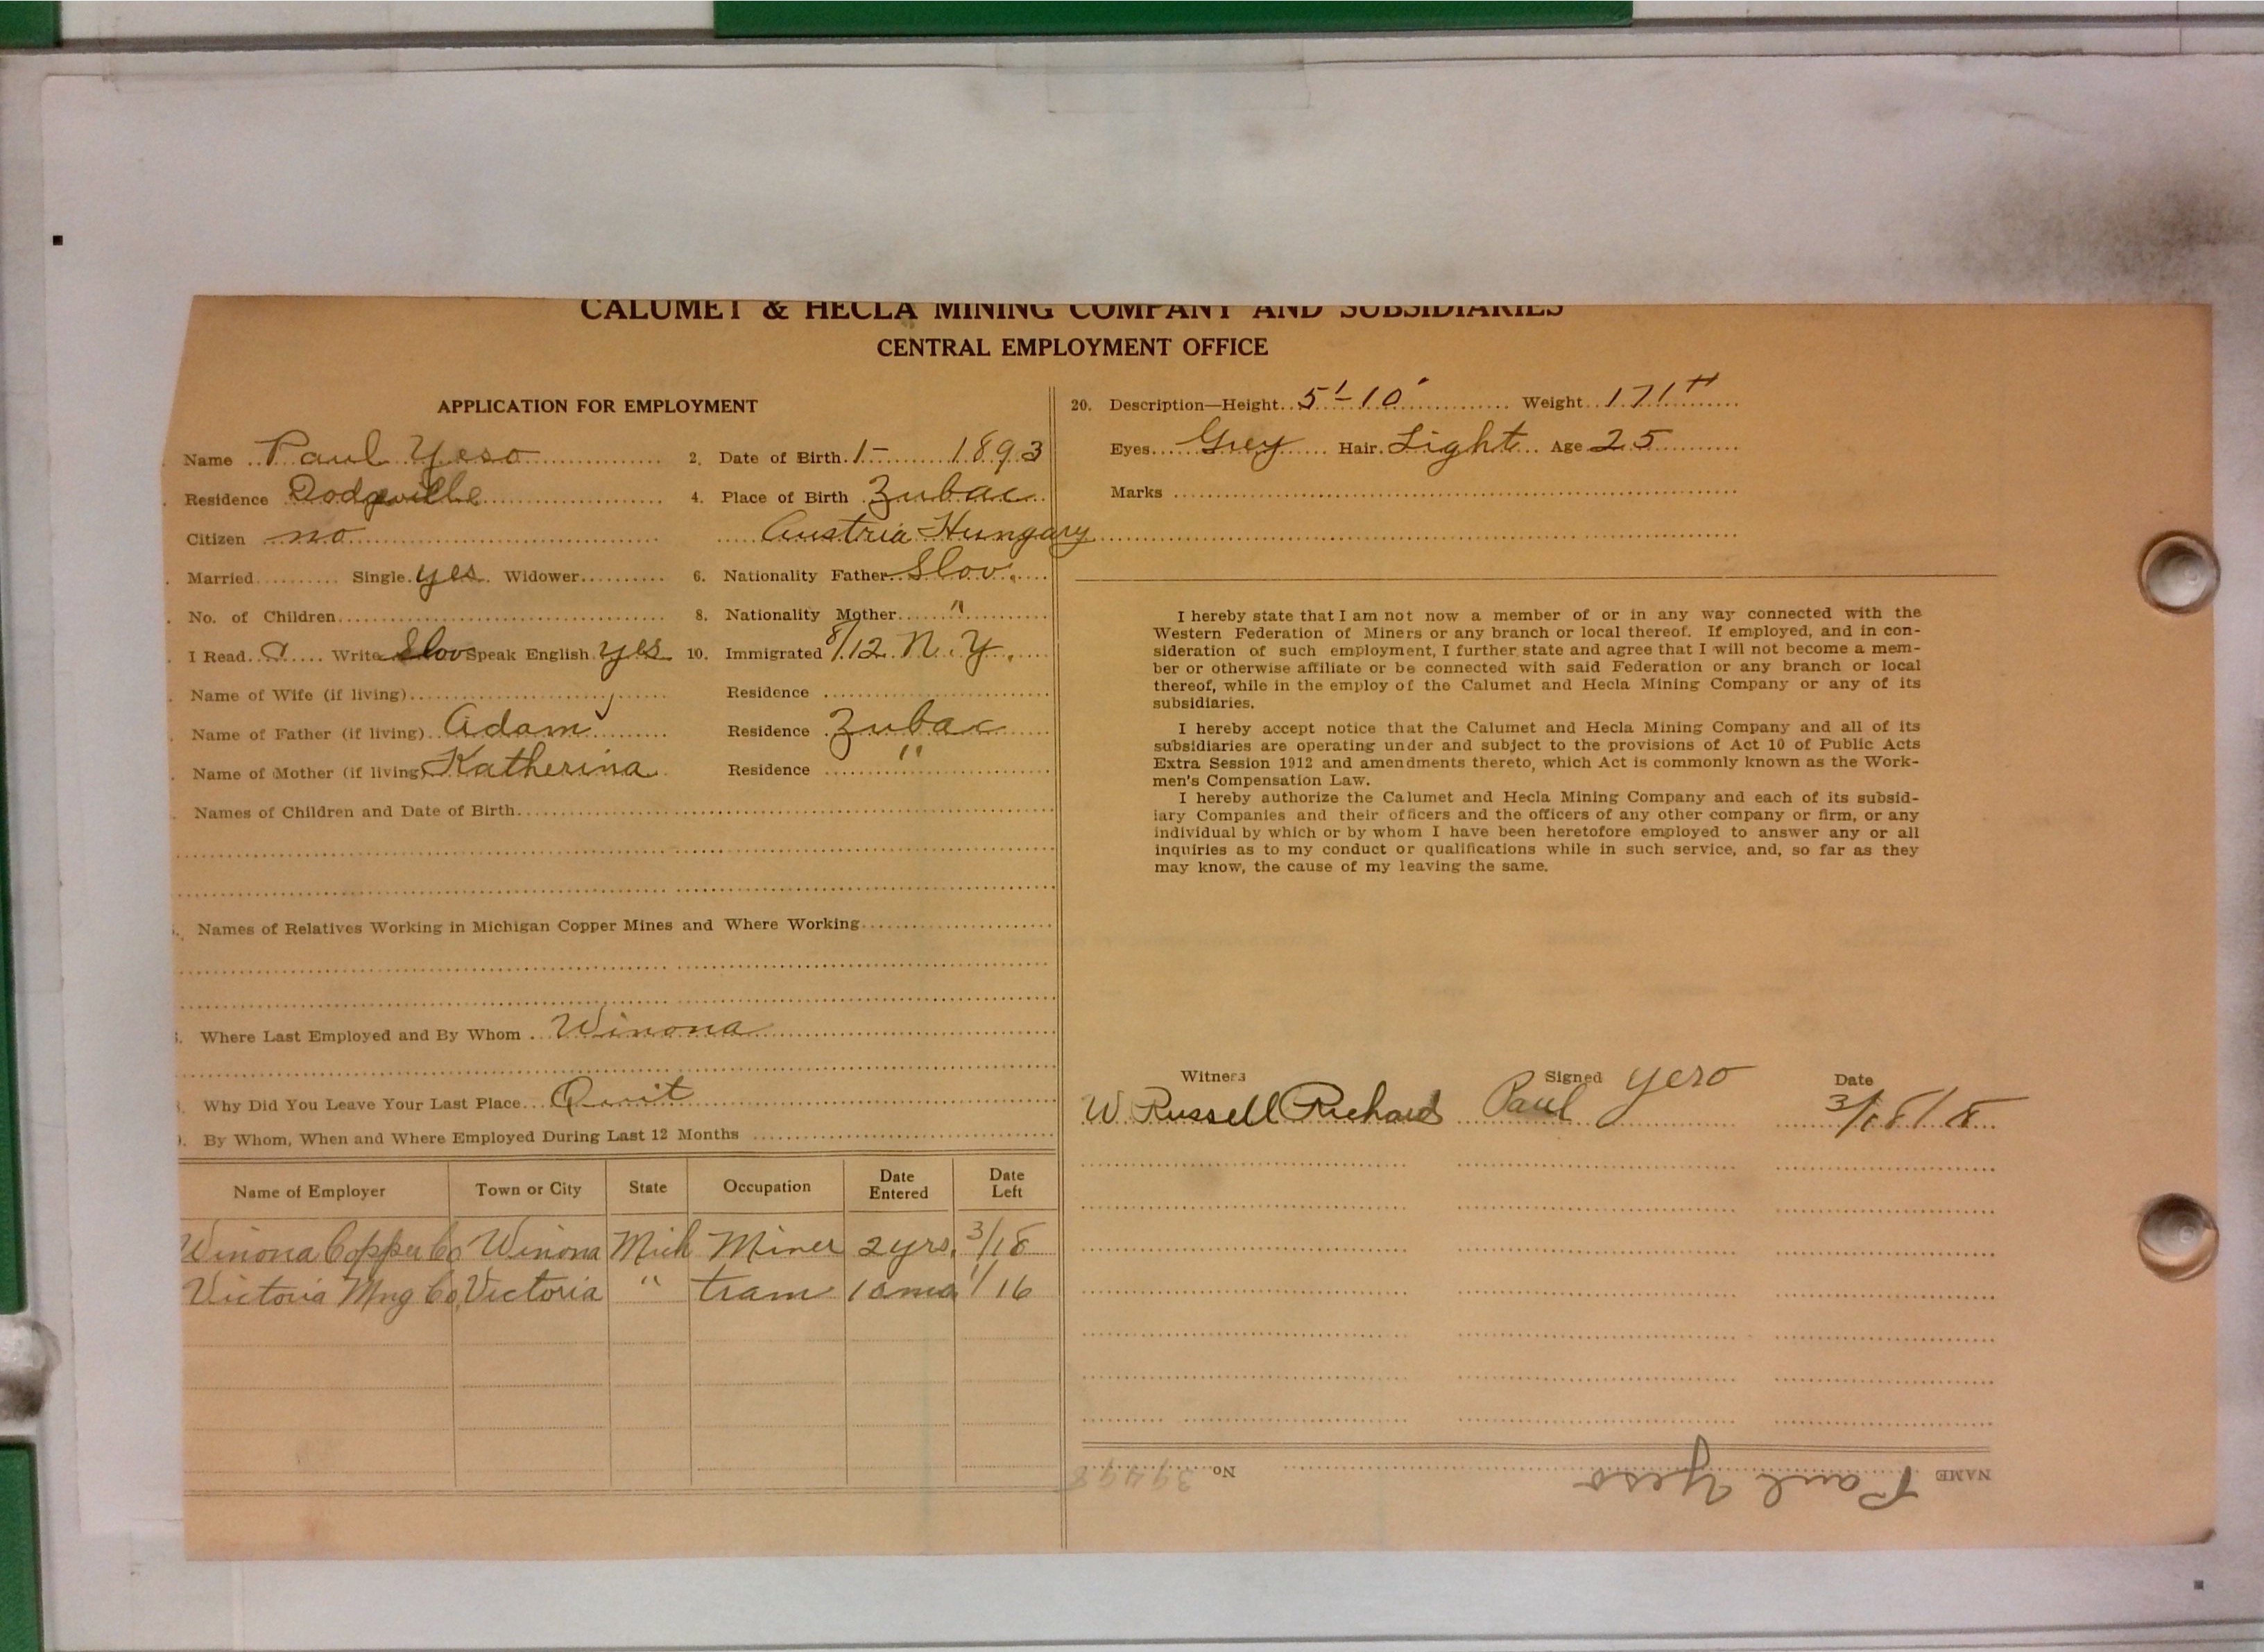 CALUMET & HECLA MINING COMPANY AND SUBSIDIARIES
CENTRAL EMPLOYMENT OFFICE
APPLICATION FOR EMPLOYMENT
Name Paul Yeso 2. Date of Birth 1- 1893
Residence Dodgeville 4. Place of Birth Zubac
Citizen no Austria Hungary
Married Single yes Widower 6. Nationality Father Slov.
No. of Children 8. Nationality Mother "
I Read Write Slov Speak English yes 10. Immigrated 8/12 N.Y.
Name of Wife (if living) Residence
Name of Father (if living) Adam Residence Zubac
Name of Mother (if living) Katherina Residence "
Names of Children and Date of Birth
Names of Relatives Working in Michigan Copper Mines and Where Working
Where Last Employed and By Whom Winona
Why Did You Leave Your Last Place Quit
By Whom, When and Where Employed During Last 12 Months
Name of Employer Town or City State Occupation Date Entered Date Left
Winona Copper Co Winona Mich Miner 2 yrs. 3/18
Victoria Mng Co. Victoria " tram 10 mo 1/16
20. Description—Height 5'-10" Weight 171#
Eyes Grey Hair Light Age 25
Marks
I hereby state that I am not now a member of or in any way connected with the
Western Federation of Miners or any branch or local thereof. If employed, and in con-
sideration of such employment, I further state and agree that I will not become a mem-
ber or otherwise affiliate or be connected with said Federation or any branch or local
thereof, while in the employ of the Calumet and Hecla Mining Company or any of its
subsidiaries.
I hereby accept notice that the Calumet and Hecla Mining Company and all of its
subsidiaries are operating under and subject to the provisions of Act 10 of Public Acts
Extra Session 1912 and amendments thereto, which Act is commonly known as the Work-
men's Compensation Law.
I hereby authorize the Calumet and Hecla Mining Company and each of its subsid-
iary Companies and their officers and the officers of any other company or firm, or any
individual by which or by whom I have been heretofore employed to answer any or all
inquiries as to my conduct or qualifications while in such service, and, so far as they
may know, the cause of my leaving the same.
Witness Signed Date
W. Russell Richards Paul Yeso
NAME Paul Yeso No.